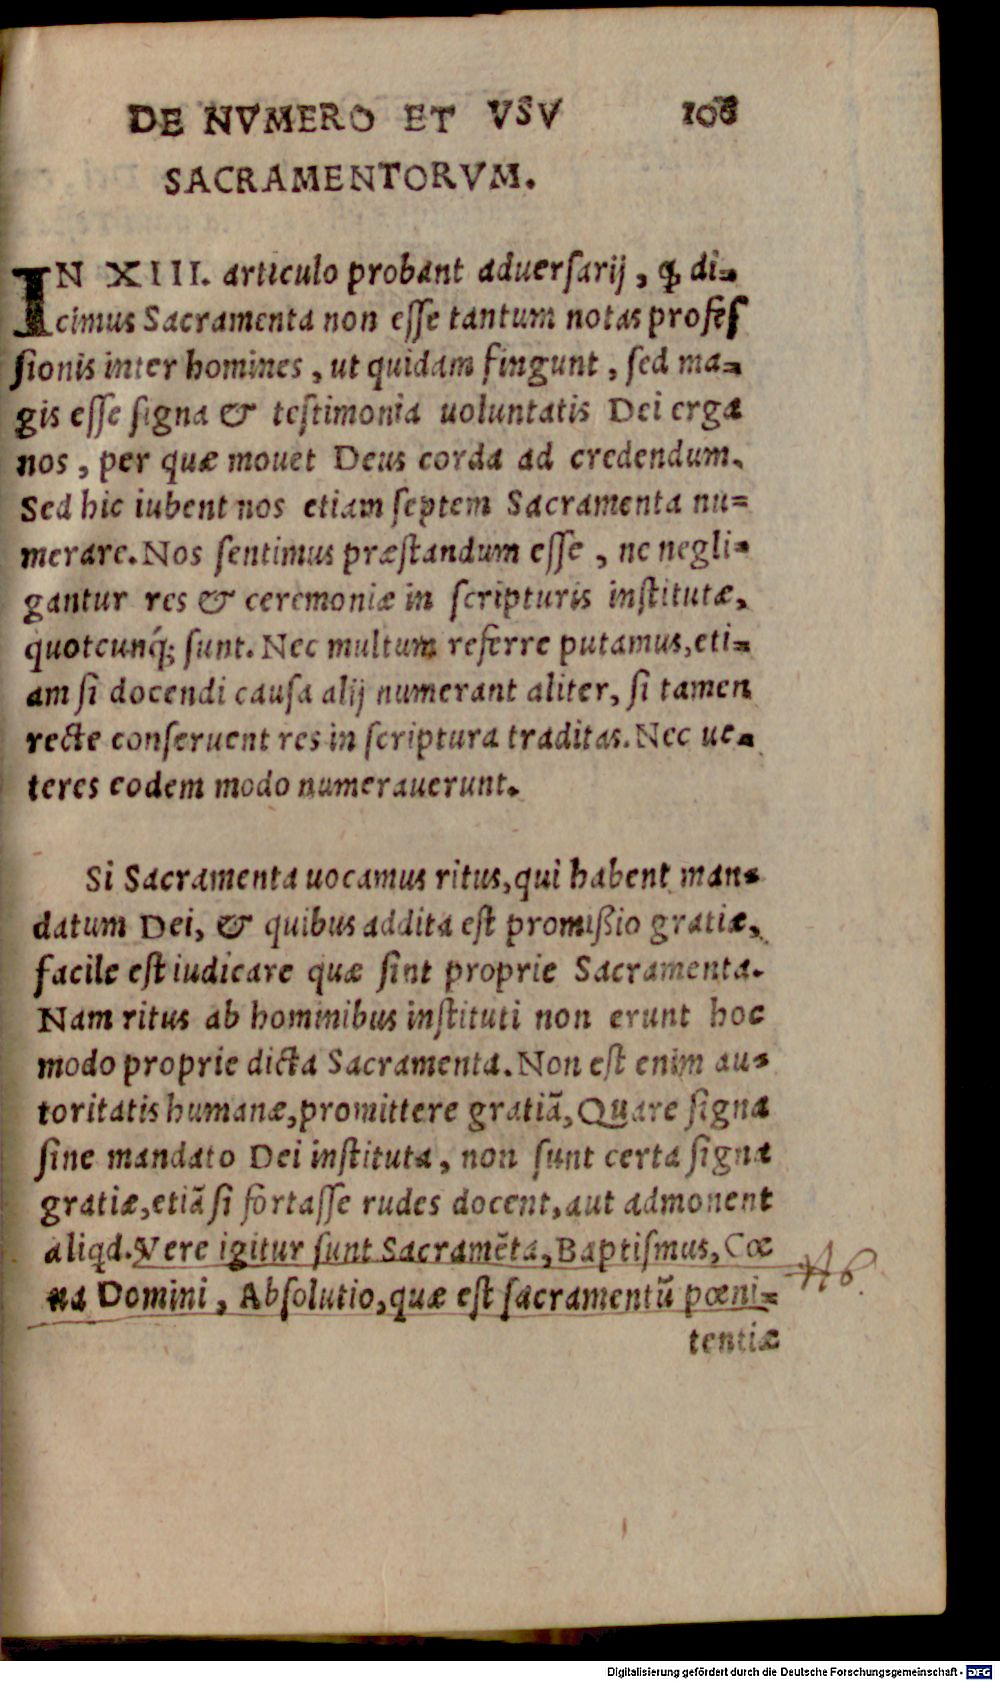 DE NVMERO ET VSV 108
SACRAMENTORVM.
IN XIII. articulo probant aduersarij, ꝙ di-
cimus Sacramenta non esse tantum notas profes
sionis inter homines, ut quidam fingunt, sed ma-
gis esse signa & testimonia uoluntatis Dei erga
nos, per quæ mouet Deus corda ad credendum.
Sed hic iubent nos etiam septem Sacramenta nu-
merare. Nos sentimus præstandum esse, ne negli-
gantur res & ceremoniæ in scripturis institutæ,
quotcunq́; sunt. Nec multum referre putamus, eti-
am si docendi causa alij numerant aliter, si tamen
recte conseruent res in scriptura traditas. Nec ue-
teres eodem modo numerauerunt.
Si Sacramenta uocamus ritus, qui habent man-
datum Dei, & quibus addita est promißio gratiæ,
facile est iudicare quæ sint proprie Sacramenta.
Nam ritus ab hominibus instituti non erunt hoc
modo proprie dicta Sacramenta. Non est enim au-
toritatis humanæ, promittere gratiã, Quare signa
sine mandato Dei instituta, non sunt certa signa
gratiæ, etiã si fortasse rudes docent, aut admonent
aliqd. Vere igitur sunt Sacramẽta, Baptismus, Cœ
na Domini, Absolutio, quæ est sacramentũ pœni-
NB.
tentiæ
Digitalisierung gefördert durch die Deutsche Forschungsgemeinschaft - DFG